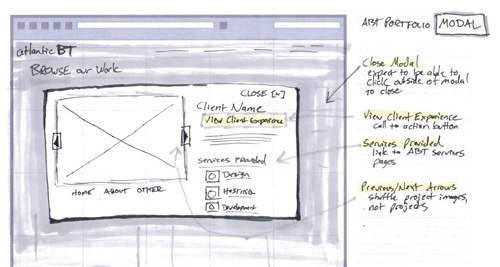 ABT PORTFOLIO MODAL
atlantic BT
BROWSE our WORK
CLOSE [x]
Client Name
View Client Experience
Services Provided
Design
Hosting
Development
HOME ABOUT OTHER
Close Modal
expect to be able to
click outside of modal
to close
View Client Experience
call to action button
Services Provided
link to ABT services
pages
Previous/Next Arrows
shuffle project images,
not projects